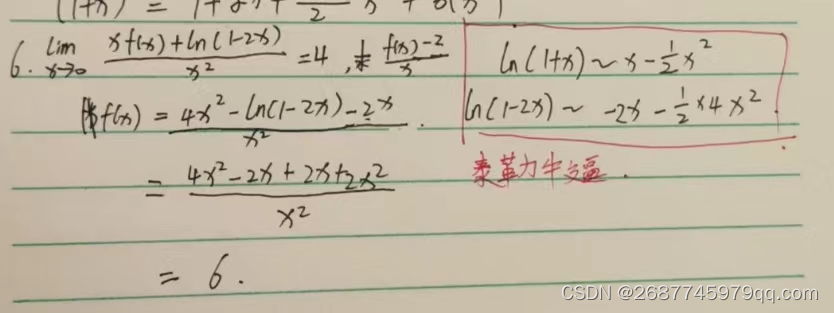 (1+x) = 1+2x+ 2 x + o(x)
6. lim x→0 xf(x)+ln(1-2x) / x² =4 , 求 f(x)-2 / x
f(x) = 4x²-ln(1-2x)-2x / x² .
= 4x²-2x+2x+2x² / x²
= 6.
ln(1+x)~x-1/2x²
ln(1-2x)~ -2x-1/2×4x²
泰革力牛逼.
CSDN @2687745979qq.com